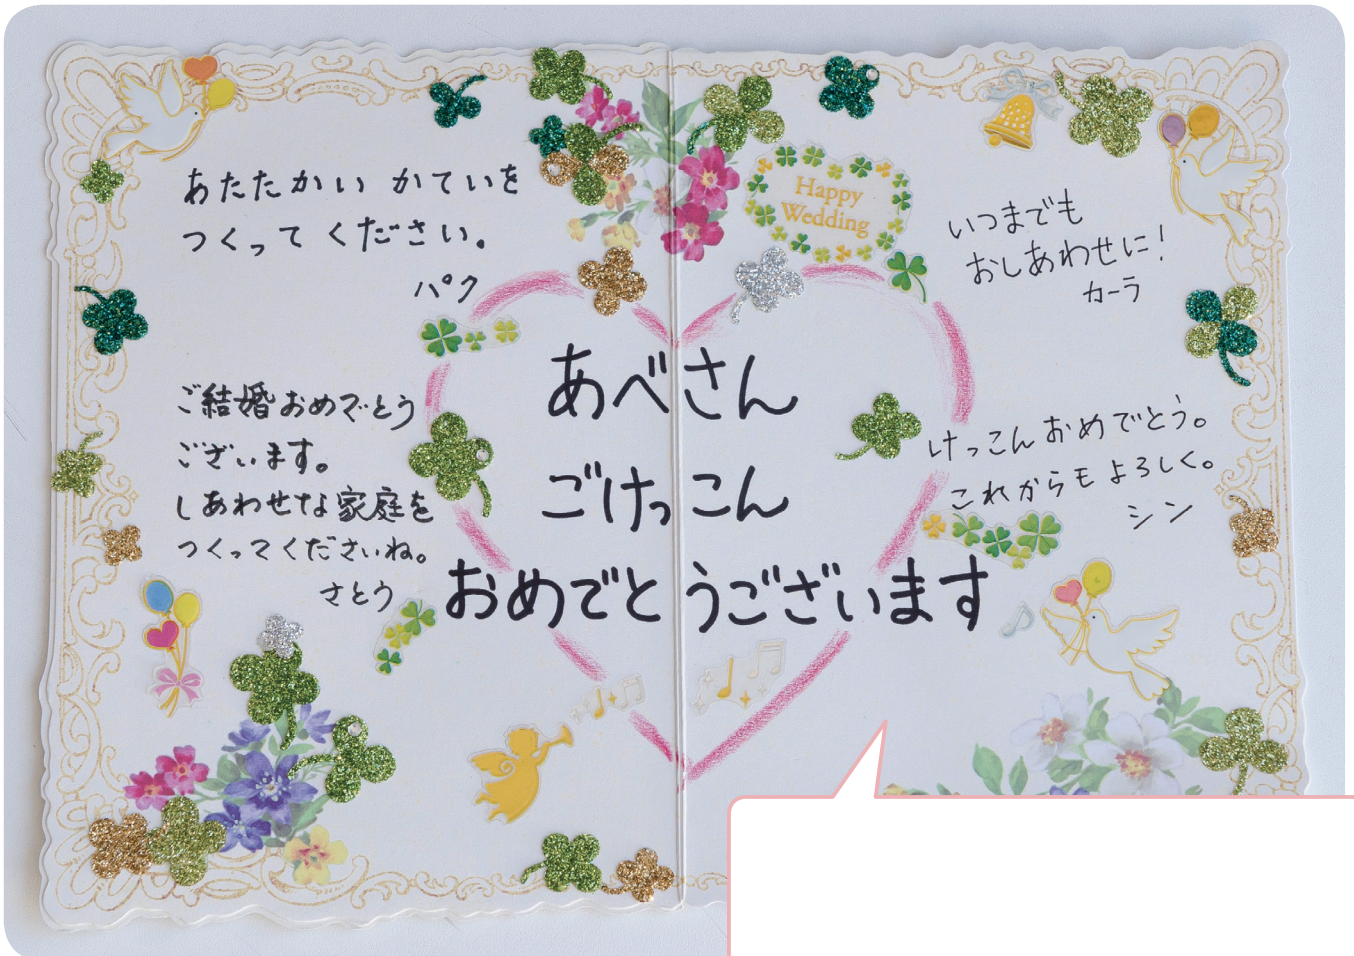 あたたかい かていを
つくって ください。
パク
Happy
Wedding
いつまでも
おしあわせに!
カーラ
ご結婚おめでとう
ございます。
しあわせな家庭を
つくってくださいね。
さとう
あべさん
ごけっこん
おめでとうございます
けっこん おめでとう。
これからも よろしく。
シン